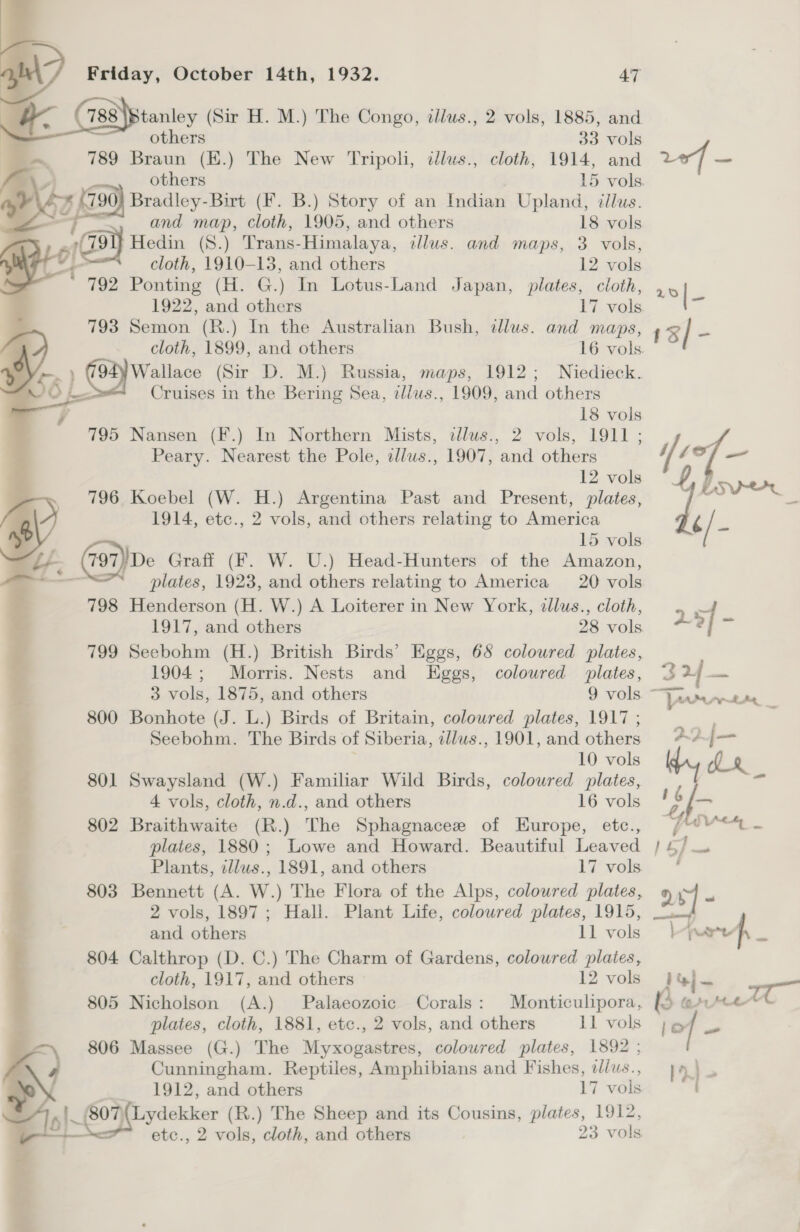 Friday, October 14th, 1932. 47
788 Stanley (Sir H. M.) The Congo, illus., 2 vols, 1885, and
others 33 vols
789 Braun (E.) The New Tripoli, illus., cloth, 1914, and
others 15 vols.
790 Bradley-Birt (F. B.) Story of an Indian Upland, illus.
and map, cloth, 1905, and others 18 vols
791 Hedin (S.) Trans-Himalaya, illus. and maps, 3 vols,
cloth, 1910-13, and others 12 vols
792 Ponting (H. G.) In Lotus-Land Japan, plates, cloth,
1922, and others 17 vols
20/-
793 Semon (R.) In the Australian Bush, illus. and maps,
cloth, 1899, and others 16 vols.
794 Wallace (Sir D. M.) Russia, maps, 1912; Niedieck.
Cruises in the Bering Sea, illus., 1909, and others
18 vols
795 Nansen (F.) In Northern Mists, illus., 2 vols, 1911;
Peary. Nearest the Pole, illus., 1907, and others
12 vols
796 Koebel (W. H.) Argentina Past and Present, plates,
1914, etc., 2 vols, and others relating to America
15 vols
797 De Graff (F. W. U.) Head-Hunters of the Amazon,
plates, 1923, and others relating to America 20 vols
798 Henderson (H. W.) A Loiterer in New York, illus., cloth,
1917, and others 28 vols
799 Seebohm (H.) British Birds' Eggs, 68 coloured plates,
1904; Morris. Nests and Eggs, coloured plates,
3 vols, 1875, and others 9 vols
32/-
800 Bonhote (J. L.) Birds of Britain, coloured plates, 1917;
Seebohm. The Birds of Siberia, illus., 1901, and others
10 vols
22/-
801 Swaysland (W.) Familiar Wild Birds, coloured plates,
4 vols, cloth, n.d., and others 16 vols
16/-
802 Braithwaite (R.) The Sphagnaceæ of Europe, etc.,
plates, 1880; Lowe and Howard. Beautiful Leaved
Plants, illus., 1891, and others 17 vols
803 Bennett (A. W.) The Flora of the Alps, coloured plates,
2 vols, 1897; Hall. Plant Life, coloured plates, 1915,
and others 11 vols
804 Calthrop (D. C.) The Charm of Gardens, coloured plates,
cloth, 1917, and others 12 vols
805 Nicholson (A.) Palaeozoic Corals: Monticulipora,
plates, cloth, 1881, etc., 2 vols, and others 11 vols
10/-
806 Massee (G.) The Myxogastres, coloured plates, 1892;
Cunningham. Reptiles, Amphibians and Fishes, illus.,
1912, and others 17 vols
807 Lydekker (R.) The Sheep and its Cousins, plates, 1912,
etc., 2 vols, cloth, and others 23 vols